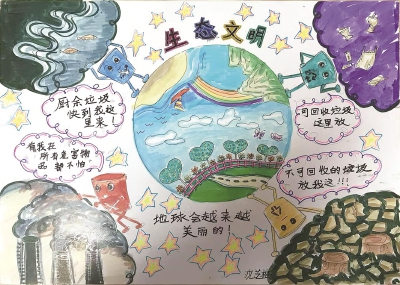 生态文明
厨余垃圾
快到我这
里来！
可回收垃圾
这里放
有我在
所有危害物
都不怕
不可回收的垃圾
放我这!!!
地球会越来越
美丽的！